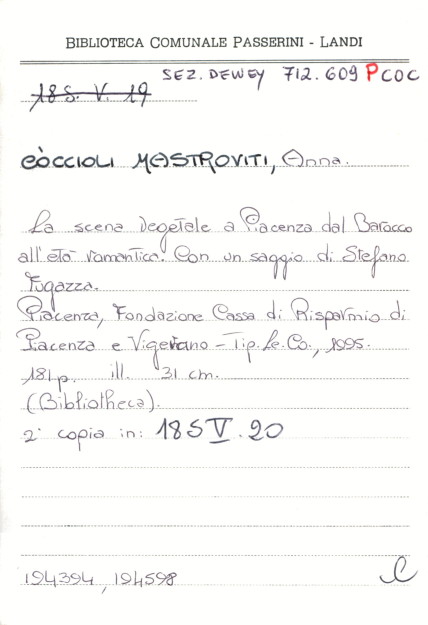 BIBLIOTECA COMUNALE PASSERINI - LANDI
SEZ. DEWEY 712.609 PCOC
18S. V. 19
CÒCCIOLI MASTROVITI, Anna.
La scena vegetale a Piacenza dal Barocco
all'età romantica. Con un saggio di Stefano
Fugazza.
Piacenza, Fondazione Cassa di Risparmio di
Piacenza e Vigevano - Tip. Le. Co., 1995.
181p. ill. 31 cm.
(Bibliotheca).
2ª copia in: 18S V. 20
194394, 194598